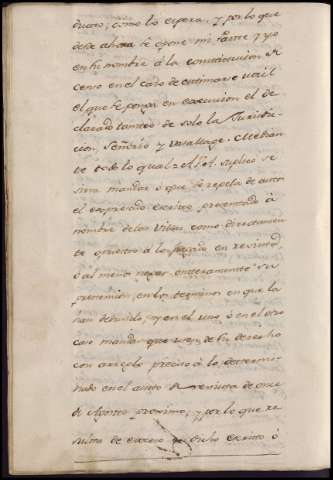 ducto; como lo espera, y por lo que
desde ahora se opone mi Parte y yo
en su nombre à la continuacion de
censo en el caso de estimarse util
el que se ponga en execucion el de
clarado tanteo de solo la Jurisdic
cion, Señorio y Vasallage. Mediante
todo lo qual A. V. A. suplico se
sirva mandar ò que se repela de autos
el expresado escrito presentado à
nombre de las Villas como directamen
te opuesto à lo juzgado en revista,
ò al menos negar enteramente su
pretension en los terminos en que la
han deducido, y en el uno ò en el otro
caso mandar que usen de su derecho
con arreglo preciso à lo determi
nado en el auto de revista de once
de Agosto proximo; y por lo que re
sulta de dicho escrito ò